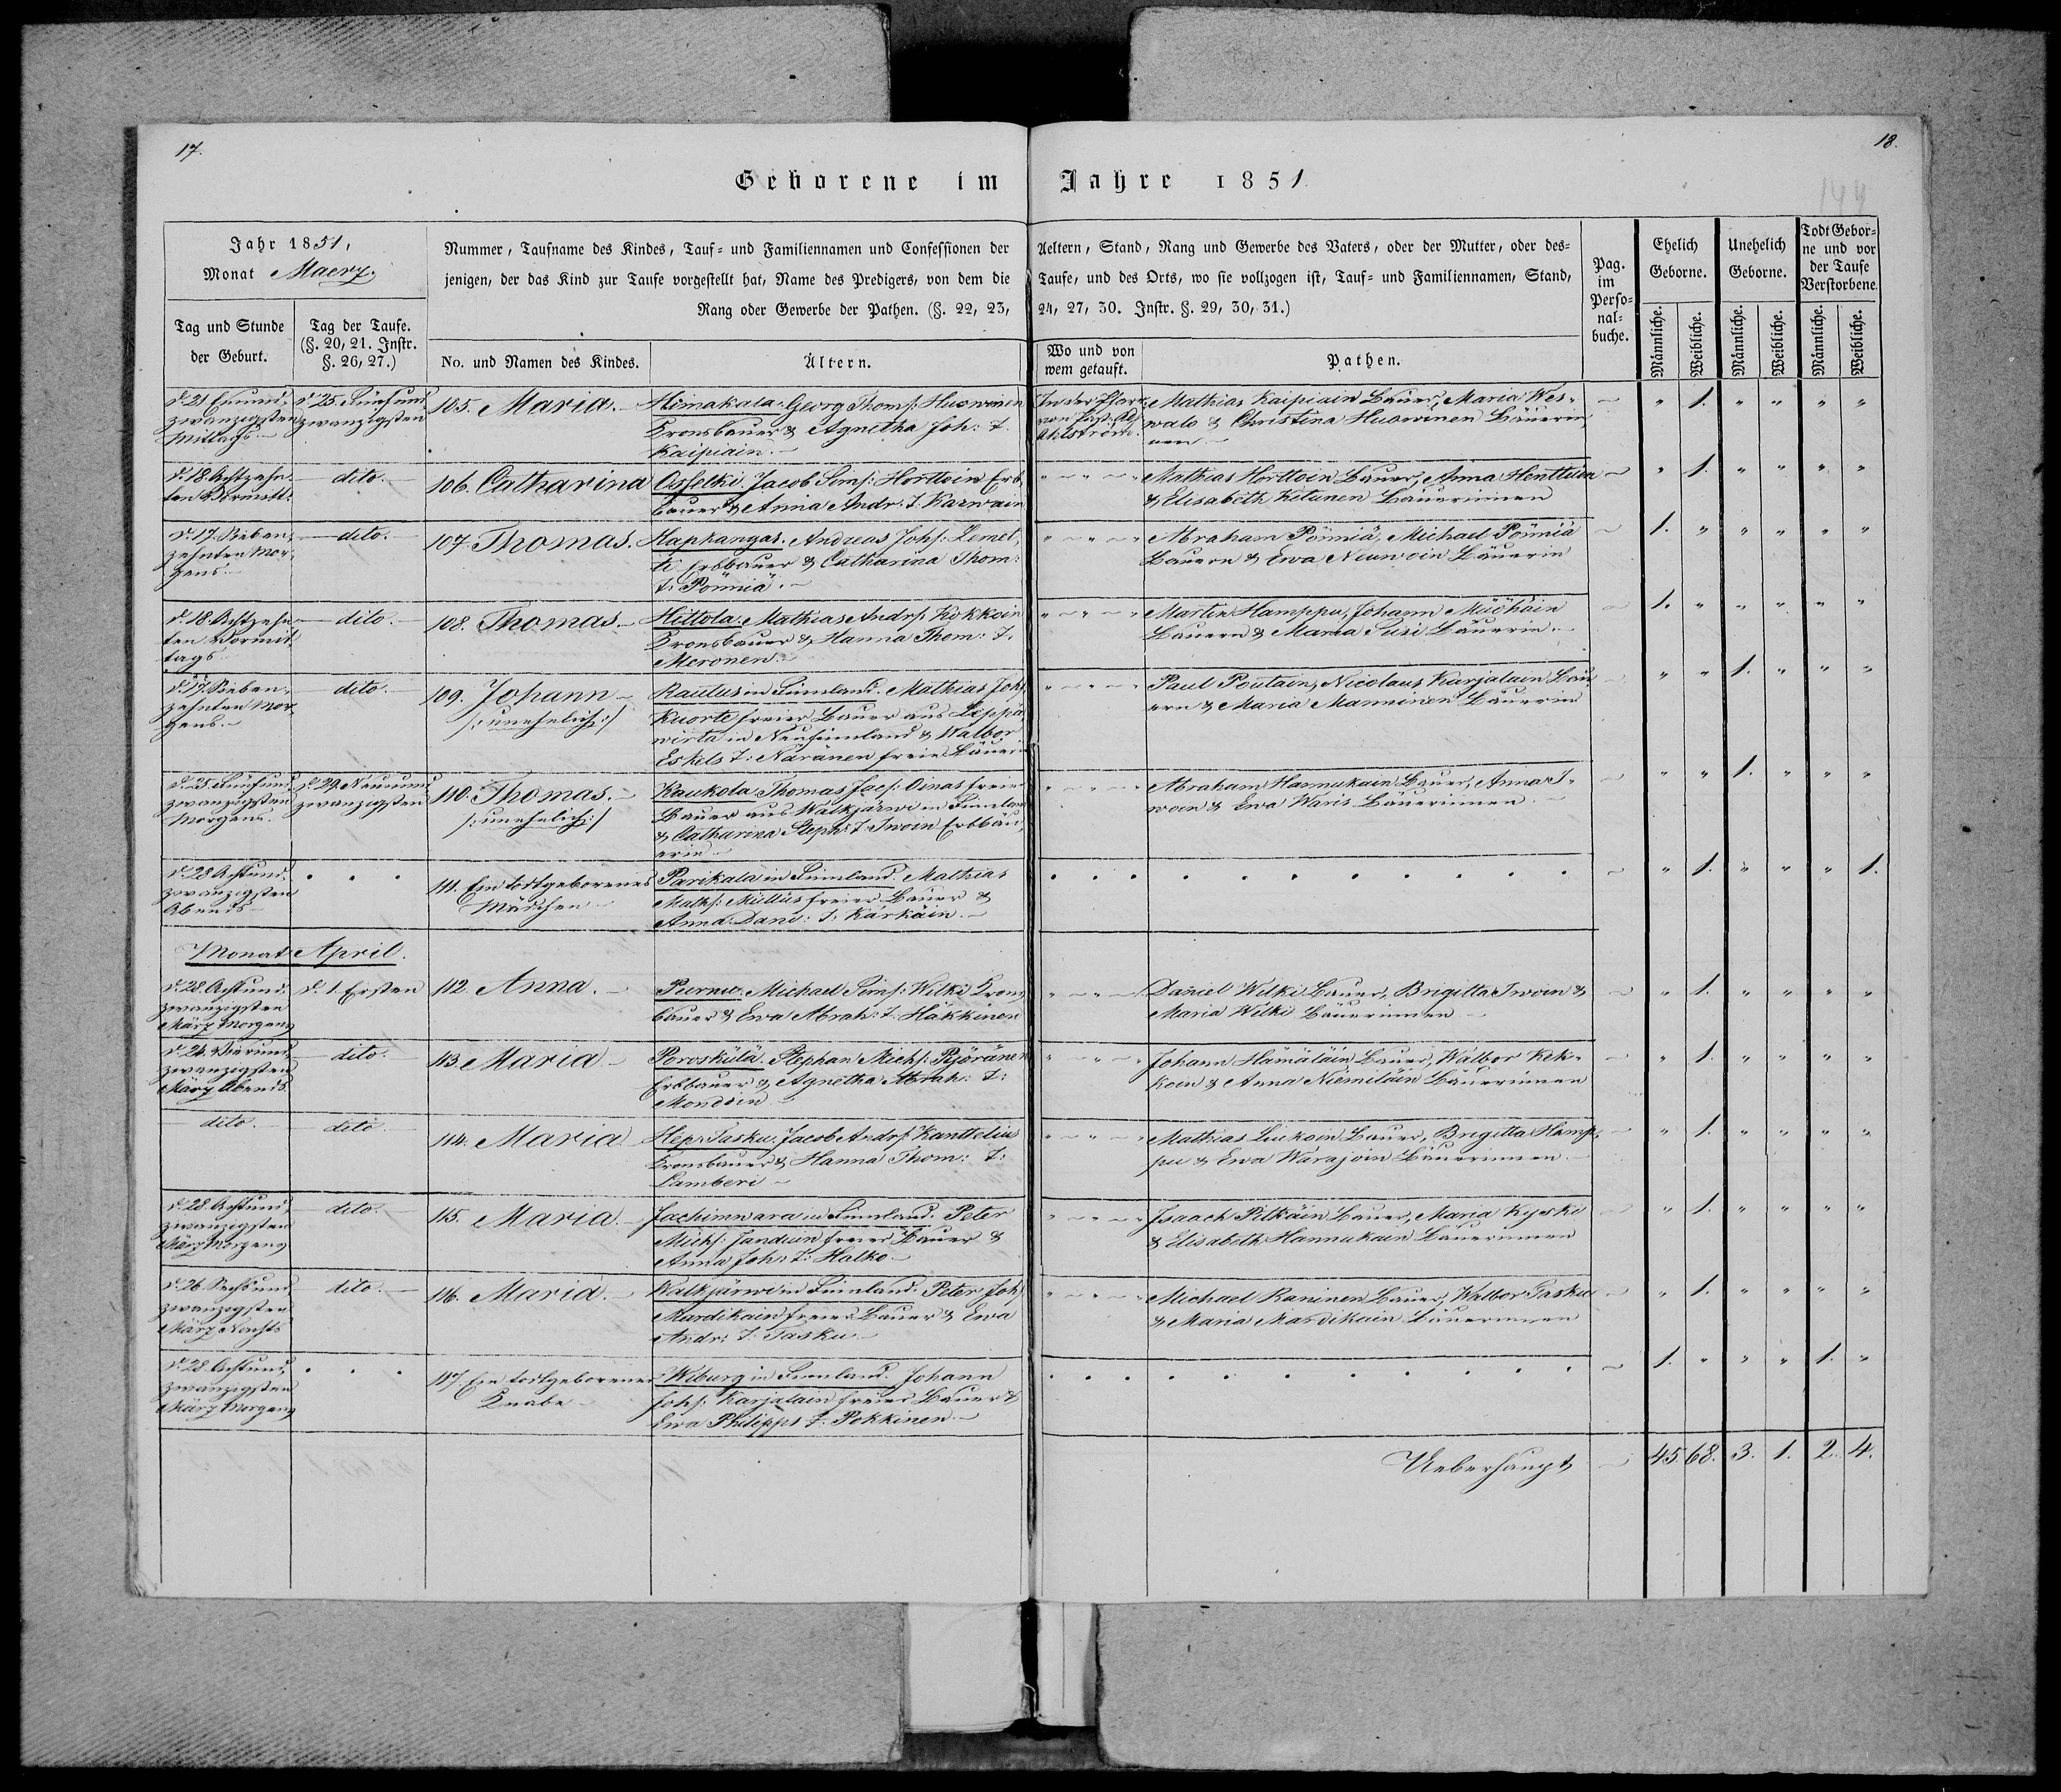 17.
18.
Geborene im Jahre 1851.
144
Jahr 1851,
Monat Maerz.
Nummer, Taufname des Kindes, Tauf- und Familiennamen und Confessionen der Aeltern, Stand, Rang und Gewerbe des Vaters, oder der Mutter, oder des-
jenigen, der das Kind zur Taufe vorgestellt hat, Name des Predigers, von dem die Taufe, und des Orts, wo sie vollzogen ist, Tauf- und Familiennamen, Stand,
Rang oder Gewerbe der Pathen. (§. 22, 23, 24, 27, 30. Instr. §. 29, 30, 31.)
Pag.
im
Perso-
nal-
buche.
Ehelich
Geborne.
Unehelich
Geborne.
Todt Gebor-
ne und vor
der Taufe
Verstorbene.
Männliche.
Weibliche.
Männliche.
Weibliche.
Männliche.
Weibliche.
Tag und Stunde
der Geburt.
Tag der Taufe.
(§. 20, 21. Instr.
§. 26, 27.)
No. und Namen des Kindes.
Ältern.
Wo und von
wem getauft.
Pathen.
d. 21. Einund-
zwanzigsten
Mittags.
d. 25. Fünfund
zwanzigsten
105. Maria.
Himakala. Georg Thoms: Huowinen
Kronsbauer & Agnetha Joh: T.
Kaipiain.
In der Pfarre
von Past: Adj.
Ahlström.
Mathias Kaipiain Bauer, Maria Wes-
walo & Christina Huowinen Bäuerin
nen
" 1. " " " "
d. 18. Achtzehn-
ten Vormitt.
dito.
106. Catharina
Osselki. Jacob Sims: Horttoin Erb-
bauer & Anna Andr: T. Karwain
Mathias Horttoin Bauer, Anna Henttuin
& Elisabeth Ketunen Bäuerinnen
" 1. " " " "
d. 17. Sieben-
zehnten Mor-
gens.
dito.
107. Thomas.
Haphangas. Andreas Johs: Lemet-
ti Erbbauer & Catharina Thom:
T: Pönniä.
Abraham Pönniä, Michael Pönniä
Bauern & Ewa Neuwoin Bäuerin
1. " " " " "
d. 18. Achtzehn-
ten Vormit-
tags
dito.
108. Thomas.
Hittola. Mathias Andrs: Kokkoin
Kronsbauer & Hanna Thom: T.
Meronen.
Martin Hamppu, Johann Müöhäin
Bauern & Maria Susi Bäuerin.
1. " " " " "
d. 17. Sieben-
zehnten Mor-
gens.
dito.
109. Johann
/: unehelich :/
Rautus in Finnland. Mathias Johs:
Kuorte freier Bauer aus Leppä-
wirta in Neufinnland & Walbor
Eskels T: Näränen freie Bäuerin
Paul Poutain, Nicolaus Karjalain Bau-
ern & Maria Manninen Bäuerin
" " 1. " " "
d. 25. Fünfund
zwanzigsten
Morgens.
d. 29. Neunund
zwanzigsten
110. Thomas.
/: unehelich :/
Kaukola. Thomas Jacs: Oinas freier
Bauer aus Walkjärwi in Finnland
& Catharina Steph: T. Iwoin Erbbäu-
erin
Abraham Hannukain Bauer, Anna I-
woin & Ewa Waris Bäuerinnen.
" " 1. " " "
d. 28. Achtund
zwanzigsten
Abends
111. Ein todtgeborenes
Mädchen
Parikala in Finnland. Mathias
Maths: Müllüs freier Bauer &
Anna Dani: T. Kärkäin.
" 1. " " " 1.
Monat April.
d. 28. Achtund
zwanzigsten
März Morgens
d. 1. Ersten
112. Anna.
Purnu. Michael Sims: Wilki Krons-
bauer & Ewa Abrah: T. Häkkinen
Daniel Wilki Bauer, Brigitta Iwoin &
Maria Wilki Bäuerinnen
" 1. " " " "
d. 24. Vierund
zwanzigsten
März Abends.
dito.
113. Maria
Poroskülä. Stephan Michs: Pyöränen
Erbbauer & Agnetha Abrah: T:
Mondoin
Johann Hämäläin Bauer, Walbor Kek-
koin & Anna Niemiläin Bäuerinnen
" 1. " " " "
dito.
dito
114. Maria
Hep. Sasku. Jacob Andrs: Kanttelius
Kronsbauer & Hanna Thom: T:
Lamberi
Mathias Liukoin Bauer, Brigitta Hamp-
pu & Ewa Warajoin Bäuerinnen
" 1. " " " "
d. 28. Achtund
zwanzigsten
März Morgens
dito.
115. Maria.
Jachimwara in Finnland. Peter
Michs: Jandiun freier Bauer &
Anna Joh: T: Halko
Isaach Pitkäin Bauer, Maria Kyski
& Elisabeth Hannukain Bäuerinnen
" 1. " " " "
d. 26. Sechsund
zwanzigsten
März Nachts
dito.
116. Maria.
Walkjärwi in Finnland. Peter Johs:
Mardikain freier Bauer & Ewa
Andr: T. Tasku
Michael Raninen Bauer, Walbor Tasku
& Maria Mardikain Bäuerinnen
" 1. " " " "
d. 28. Achtund
zwanzigsten
März Morgens
117. Ein todtgeborener
Knabe
Wiburg in Finnland. Johann
Johs: Karjalain freier Bauer &
Ewa Philipps T: Pokkinen
1. " " " 1. "
Ueberhaupt 45. 68. 3. 1. 2. 4.